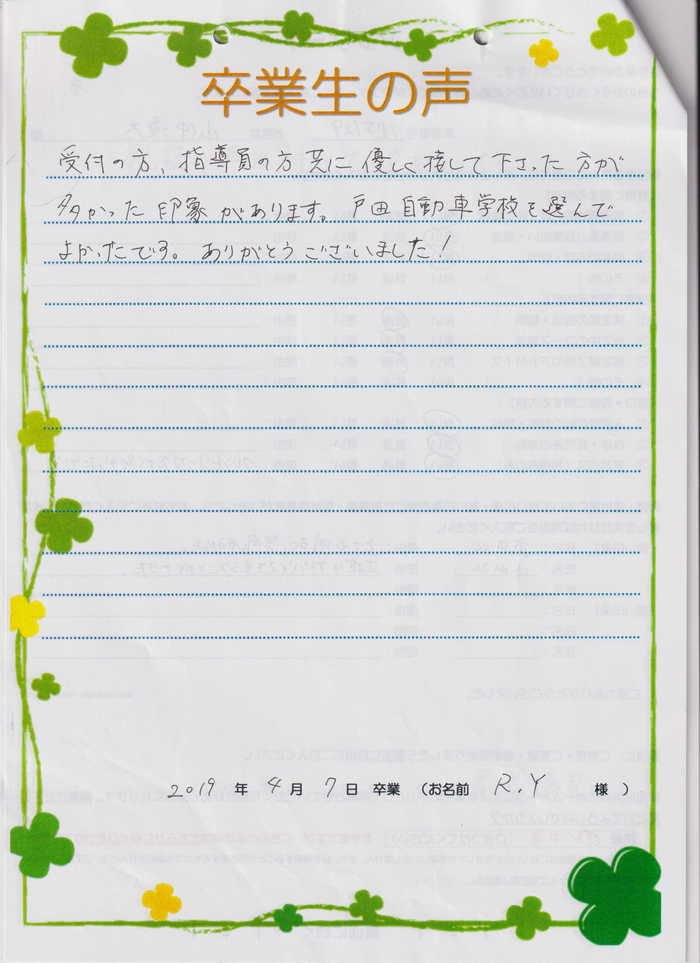 卒業生の声
受付の方、指導員の方共に優しく接して下さった方が
多かった印象があります。戸田自動車学校を選んで
よかったです。ありがとうございました!
2019 年 4 月 7 日 卒業 (お名前 R.Y 様 )